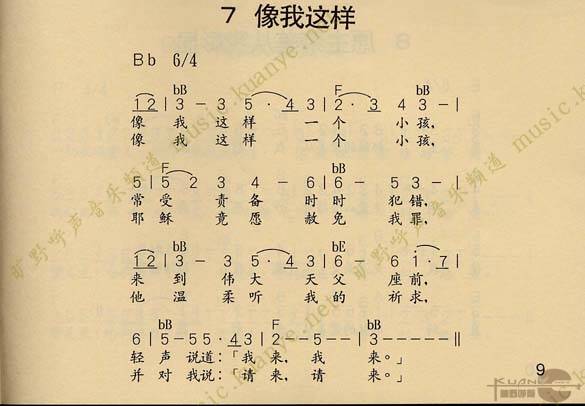 7 像我这样
Bb 6/4
bB F bB
1 2 | 3 - 3 5 · 4 3 | 1 - - 2 · 3 4 3 - |
像 我 这 样 一 个 小 孩,
像 我 这 样 一 个 小 孩,
F bB
5 | 5 5 2 3 - 5 - 6 | 6 - 5 3 - |
常 受 责 备 时 时 犯 错,
耶 稣 竟 愿 赦 免 我 罪,
bB bE
1 2 | 3 - 3 5 · 4 3 | 6 - - 6 - 6 1 · 7 |
来 到 伟 大 天 父 座 前,
他 温 柔 听 我 的 祈 求,
bB F bB
6 | 5 - 5 5 5 · 4 3 | 2 - - 5 - - | 3 - - - - - ||
轻 声 说 道:「我 来, 我 来。」
并 对 我 说:「请 来, 请 来。」
9
旷野呼声音乐频道 music.kuanye.net